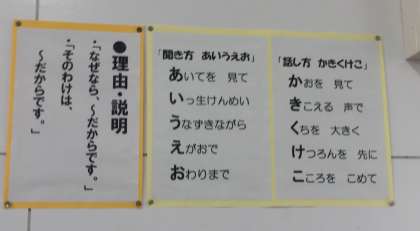 ●理由・説明
・「なぜなら、～だからです。」
・「そのわけは、
～だからです。」
「聞き方 あいうえお」
あいてを 見て
いっ生けんめい
うなずきながら
えがおで
おわりまで
「話し方 かきくけこ」
かおを 見て
きこえる 声で
くちを 大きく
けつろんを 先に
こころを こめて